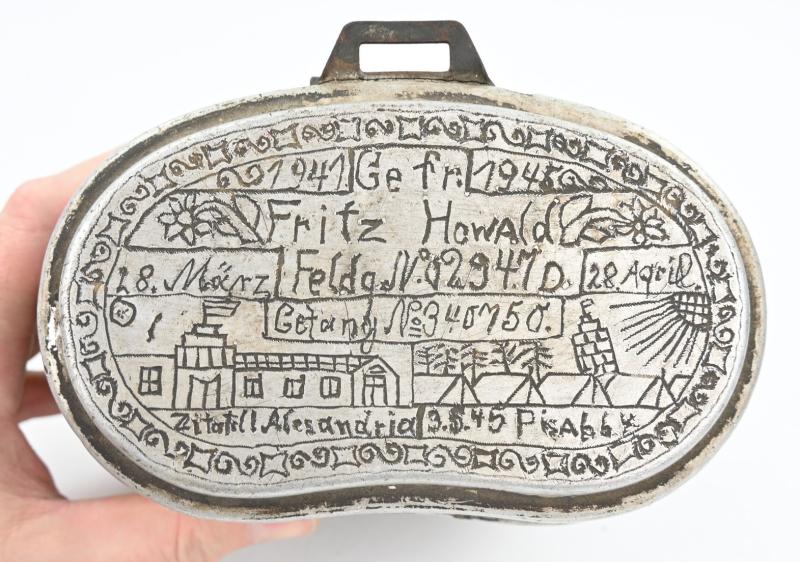 1941 Gefr. 1945
Fritz Howald
28. März Feldg. No 02947 D. 28. April.
Gefang No 340750.
Zitatell Alesandria 9.5.45 Pisa